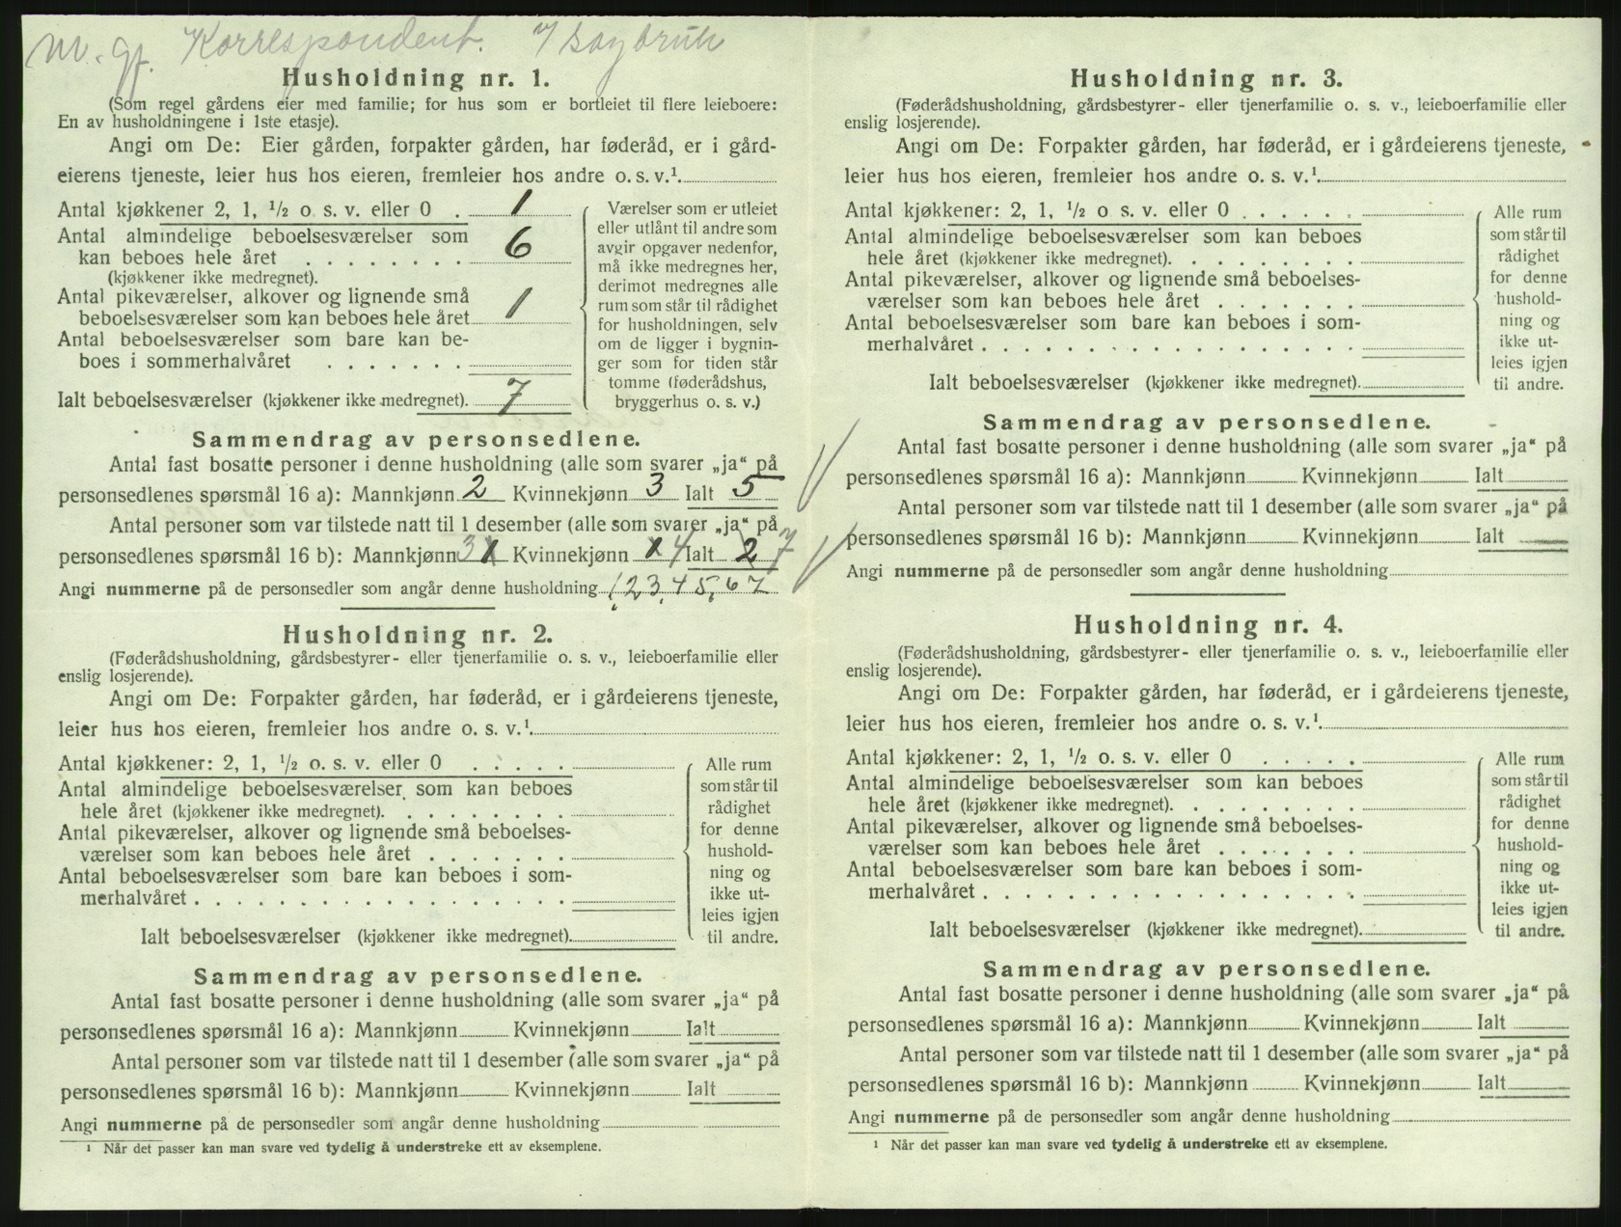 m. gf. Korrespondent. i sagbruk
Husholdning nr. 1.
(Som regel gårdens eier med familie; for hus som er bortleiet til flere leieboere:
En av husholdningene i 1ste etasje).
Angi om De: Eier gården, forpakter gården, har føderåd, er i gård-
eierens tjeneste, leier hus hos eieren, fremleier hos andre o. s. v.¹.
Antal kjøkkener 2, 1, ½ o s. v. eller 0 . 1
Antal almindelige beboelsesværelser som
kan beboes hele året . . . . . . . . 6
(kjøkkener ikke medregnet).
Antal pikeværelser, alkover og lignende små
beboelsesværelser som kan beboes hele året 1
Antal beboelsesværelser som bare kan be-
boes i sommerhalvåret . . . . . . .
Ialt beboelsesværelser (kjøkkener ikke medregnet). 7
Værelser som er utleiet
eller utlånt til andre som
avgir opgaver nedenfor,
må ikke medregnes her,
derimot medregnes alle
rum som står til rådighet
for husholdningen, selv
om de ligger i bygnin-
ger som for tiden står
tomme (føderådshus,
bryggerhus o. s. v.)
Sammendrag av personsedlene.
Antal fast bosatte personer i denne husholdning (alle som svarer „ja“ på
personsedlenes spørsmål 16 a): Mannkjønn 2 Kvinnekjønn 3 Ialt 5
Antal personer som var tilstede natt til 1 desember (alle som svarer „ja“ på
personsedlenes spørsmål 16 b): Mannkjønn 3 1 Kvinnekjønn 1 4 Ialt 2 7
Angi nummerne på de personsedler som angår denne husholdning 1, 2, 3, 4, 5, 6 7
Husholdning nr. 2.
(Føderådshusholdning, gårdsbestyrer- eller tjenerfamilie o. s. v., leieboerfamilie eller
enslig losjerende).
Angi om De: Forpakter gården, har føderåd, er i gårdeierens tjeneste,
leier hus hos eieren, fremleier hos andre o. s. v.¹.
Antal kjøkkener: 2, 1, ½ o. s. v. eller 0 . . . . .
Antal almindelige beboelsesværelser som kan beboes
hele året (kjøkkener ikke medregnet). . . . . . . . .
Antal pikeværelser, alkover og lignende små beboelses-
værelser som kan beboes hele året . . . . . . .
Antal beboelsesværelser som bare kan beboes i som-
merhalvåret . . . . . . . . . . . . . . . . . .
Ialt beboelsesværelser (kjøkkener ikke medregnet).
Alle rum
som står til
rådighet
for denne
hushold-
ning og
ikke ut-
leies igjen
til andre.
Sammendrag av personsedlene.
Antal fast bosatte personer i denne husholdning (alle som svarer „ja“ på
personsedlenes spørsmål 16 a): Mannkjønn Kvinnekjønn Ialt
Antal personer som var tilstede natt til 1 desember (alle som svarer „ja“ på
personsedlenes spørsmål 16 b): Mannkjønn Kvinnekjønn Ialt
Angi nummerne på de personsedler som angår denne husholdning
¹ Når det passer kan man svare ved tydelig å understreke ett av eksemplene.
Husholdning nr. 3.
(Føderådshusholdning, gårdsbestyrer- eller tjenerfamilie o. s. v., leieboerfamilie eller
enslig losjerende).
Angi om De: Forpakter gården, har føderåd, er i gårdeierens tjeneste,
leier hus hos eieren, fremleier hos andre o. s. v.¹.
Antal kjøkkener: 2, 1, ½ o s. v. eller 0 . . . . . .
Antal almindelige beboelsesværelser som kan beboes
hele året (kjøkkener ikke medregnet). . . . . . . . .
Antal pikeværelser, alkover og lignende små beboelses-
værelser som kan beboes hele året . . . . . . .
Antal beboelsesværelser som bare kan beboes i som-
merhalvåret . . . . . . . . . . . . . . . . . .
Ialt beboelsesværelser (kjøkkener ikke medregnet).
Alle rum
som står til
rådighet
for denne
hushold-
ning og
ikke ut-
leies igjen
til andre.
Sammendrag av personsedlene.
Antal fast bosatte personer i denne husholdning (alle som svarer „ja“ på
personsedlenes spørsmål 16 a): Mannkjønn Kvinnekjønn Ialt
Antal personer som var tilstede natt til 1 desember (alle som svarer „ja“ på
personsedlenes spørsmål 16 b): Mannkjønn Kvinnekjønn Ialt
Angi nummerne på de personsedler som angår denne husholdning
Husholdning nr. 4.
(Føderådshusholdning, gårdsbestyrer- eller tjenerfamilie o. s. v., leieboerfamilie eller
enslig losjerende).
Angi om De: Forpakter gården, har føderåd, er i gårdeierens tjeneste,
leier hus hos eieren, fremleier hos andre o. s. v.¹.
Antal kjøkkener: 2, 1, ½ o. s. v. eller 0 . . . . .
Antal almindelige beboelsesværelser som kan beboes
hele året (kjøkkener ikke medregnet). . . . . . . . .
Antal pikeværelser, alkover og lignende små beboelses-
værelser som kan beboes hele året . . . . . . .
Antal beboelsesværelser som bare kan beboes i som-
merhalvåret . . . . . . . . . . . . . . . . . .
Ialt beboelsesværelser (kjøkkener ikke medregnet).
Alle rum
som står til
rådighet
for denne
hushold-
ning og
ikke ut-
leies igjen
til andre.
Sammendrag av personsedlene.
Antal fast bosatte personer i denne husholdning (alle som svarer „ja“ på
personsedlenes spørsmål 16 a): Mannkjønn Kvinnekjønn Ialt
Antal personer som var tilstede natt til 1 desember (alle som svarer „ja“ på
personsedlenes spørsmål 16 b): Mannkjønn Kvinnekjønn Ialt
Angi nummerne på de personsedler som angår denne husholdning
¹ Når det passer kan man svare ved tydelig å understreke ett av eksemplene.